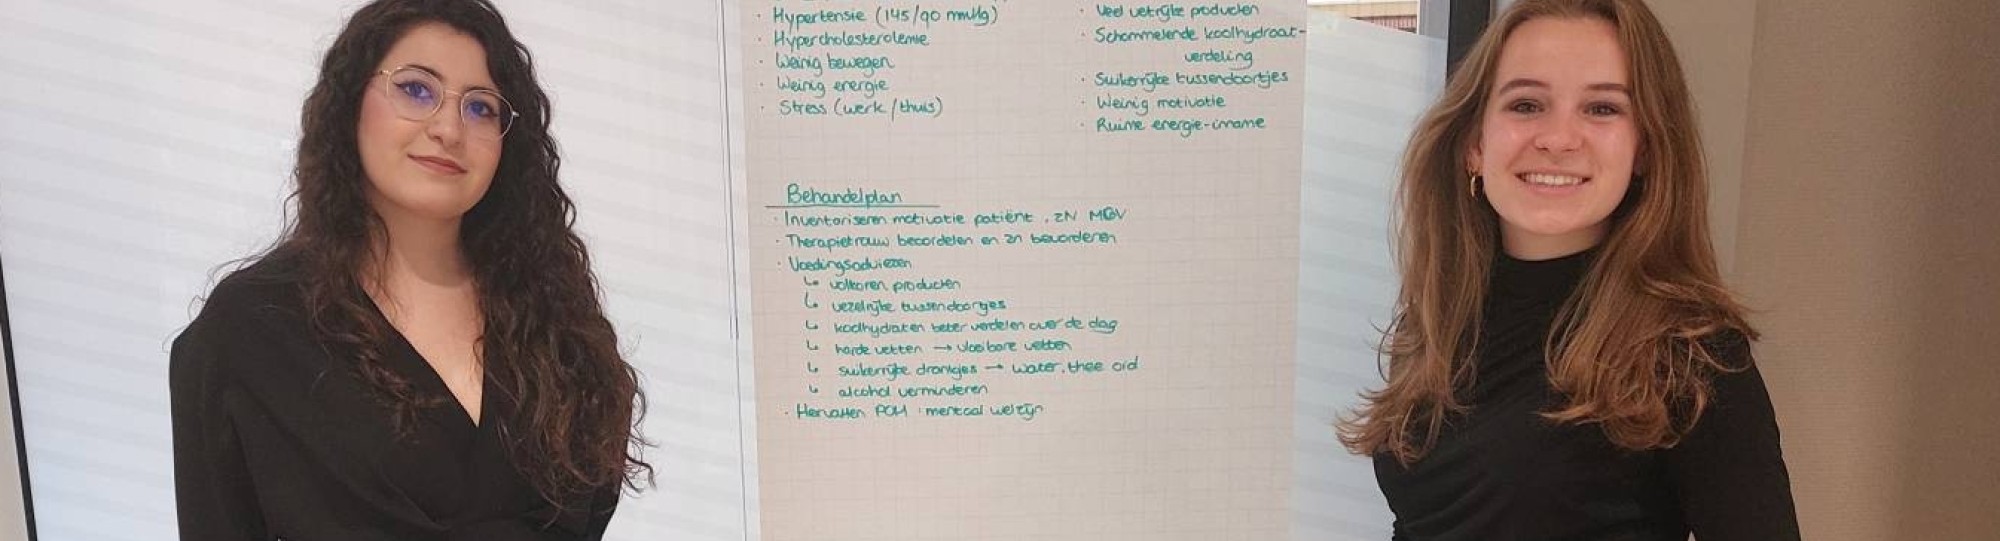 · Hypertensie (145/90 mmHg)
· Hypercholesterolemie
· Weinig bewegen
· Weinig energie
· Stress (werk/thuis)
· Veel vetrijke producten
· Schommelende koolhydraat-
verdeling
· Suikerrijke tussendoortjes
· Weinig motivatie
· Ruime energie-inname
Behandelplan
· Inventariseren motivatie patiënt, zN MGV
· Therapietrouw beoordelen en zn bevorderen
· Voedingsadviezen
↳ volkoren producten
↳ vezelrijke tussendoortjes
↳ koolhydraten beter verdelen over de dag
↳ harde vetten → vloeibare vetten
↳ suikerrijke drankjes → water, thee oid
↳ alcohol verminderen
· Hervatten POH: mentaal welzijn